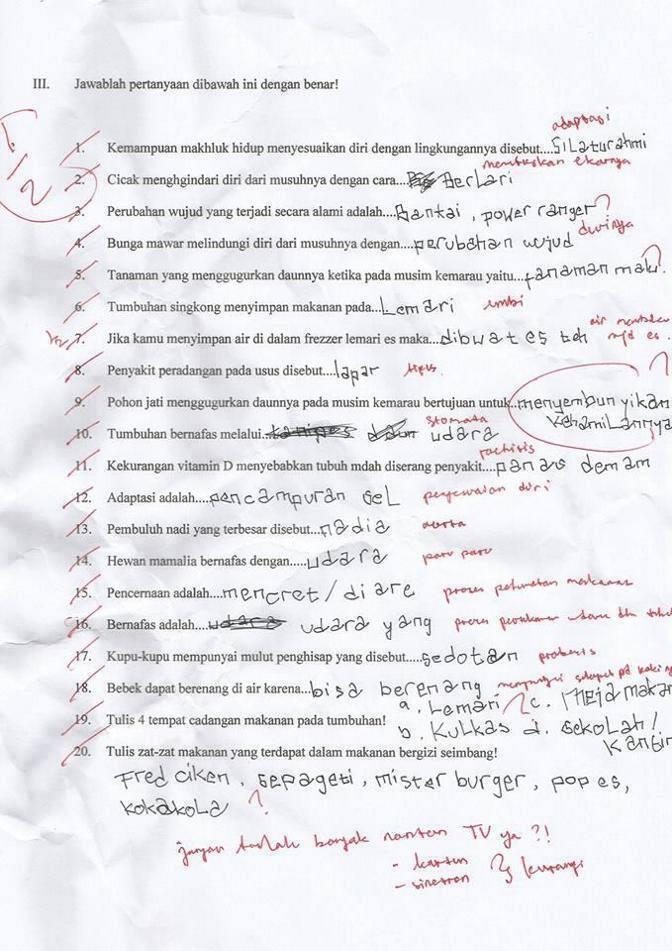 III. Jawablah pertanyaan dibawah ini dengan benar!
adaptasi
1. Kemampuan makhluk hidup menyesuaikan diri dengan lingkungannya disebut....Silaturahmi
memutuskan ekornya
2. Cicak menghgindari diri dari musuhnya dengan cara... Berlari
3. Perubahan wujud yang terjadi secara alami adalah....Bantai, power ranger ?
durinya
4. Bunga mawar melindungi diri dari musuhnya dengan....perubahan wujud
5. Tanaman yang menggugurkan daunnya ketika pada musim kemarau yaitu...tanaman mati. ?
6. Tumbuhan singkong menyimpan makanan pada...Lemari umbi
air membeku
1/2 7. Jika kamu menyimpan air di dalam frezzer lemari es maka...dibuat es teh mjd es.
8. Penyakit peradangan pada usus disebut...lapar tipus.
9. Pohon jati menggugurkan daunnya pada musim kemarau bertujuan untuk..menyembunyikan ?
kehamilannya
stomata
10. Tumbuhan bernafas melalui... udara
rachitis
11. Kekurangan vitamin D menyebabkan tubuh mdah diserang penyakit....panas demam
12. Adaptasi adalah....pencampuran sel penyesuaian diri
13. Pembuluh nadi yang terbesar disebut...nadia aorta
14. Hewan mamalia bernafas dengan.....udara paru paru
15. Pencernaan adalah....mencret/diare proses makanan
16. Bernafas adalah.... udara yang proses udara
17. Kupu-kupu mempunyai mulut penghisap yang disebut.....sedotan probosis
18. Bebek dapat berenang di air karena...bisa berenang mempunyai selaput pd kaki
a. Lemari ? c. Meja makan
19. Tulis 4 tempat cadangan makanan pada tumbuhan!
b. Kulkas d. sekolah/
kantin
20. Tulis zat-zat makanan yang terdapat dalam makanan bergizi seimbang!
Fred ciken, sepageti, mister burger, pop es,
kokakola ?
jangan banyak nonton TV ya ?!
- kartun
- sinetron kurangi